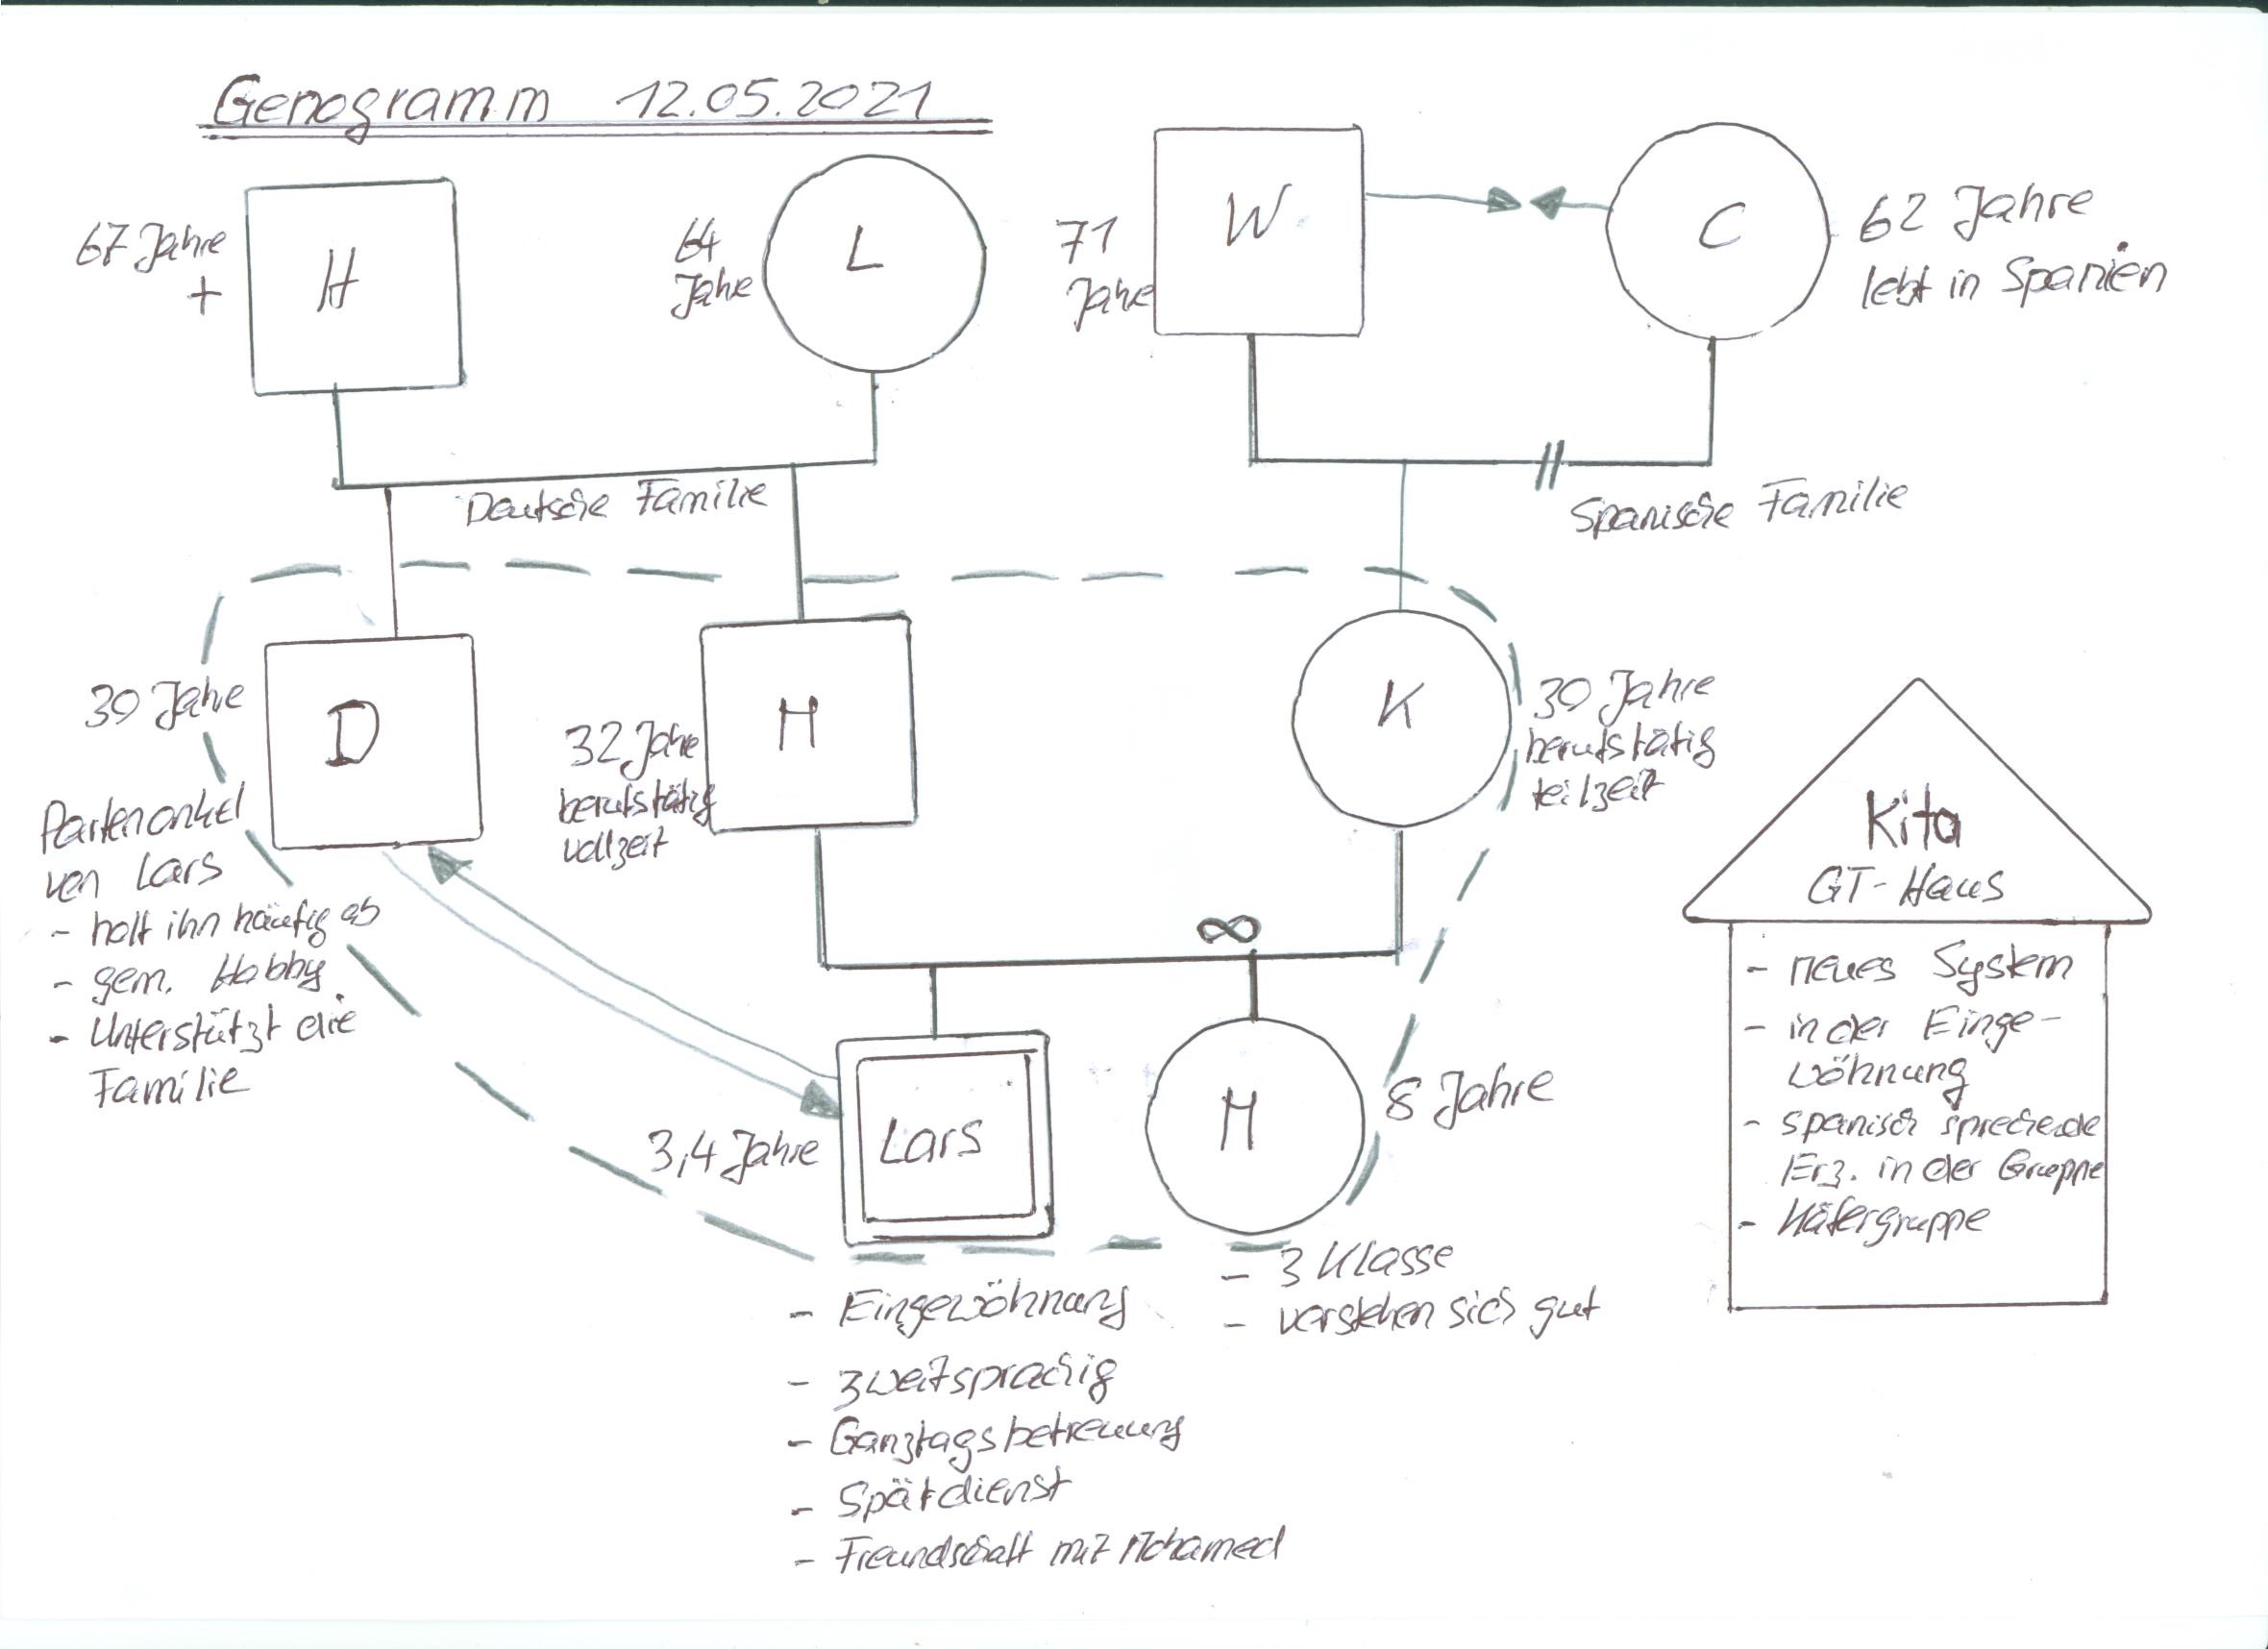 Genogramm 12.05.2021
67 Jahre
+
H
64
Jahre
L
71
Jahre
W
C
62 Jahre
lebt in Spanien
Deutsche Familie
Spanische Familie
30 Jahre
D
Patenonkel
von Lars
- holt ihn häufig ab
- gem. Hobby
- Unterstützt die
Familie
32 Jahre
berufstätig
vollzeit
M
K
30 Jahre
berufstätig
teilzeit
∞
3,4 Jahre
Lars
M
8 Jahre
- Eingewöhnung
- zweitsprachig
- Ganztagsbetreuung
- Spätdienst
- Freundschaft mit Mohamed
- 3 Klasse
- verstehen sich gut
Kita
GT-Haus
- neues System
- in der Einge-
wöhnung
- spanisch sprechende
Erz. in der Gruppe
- Käfergruppe